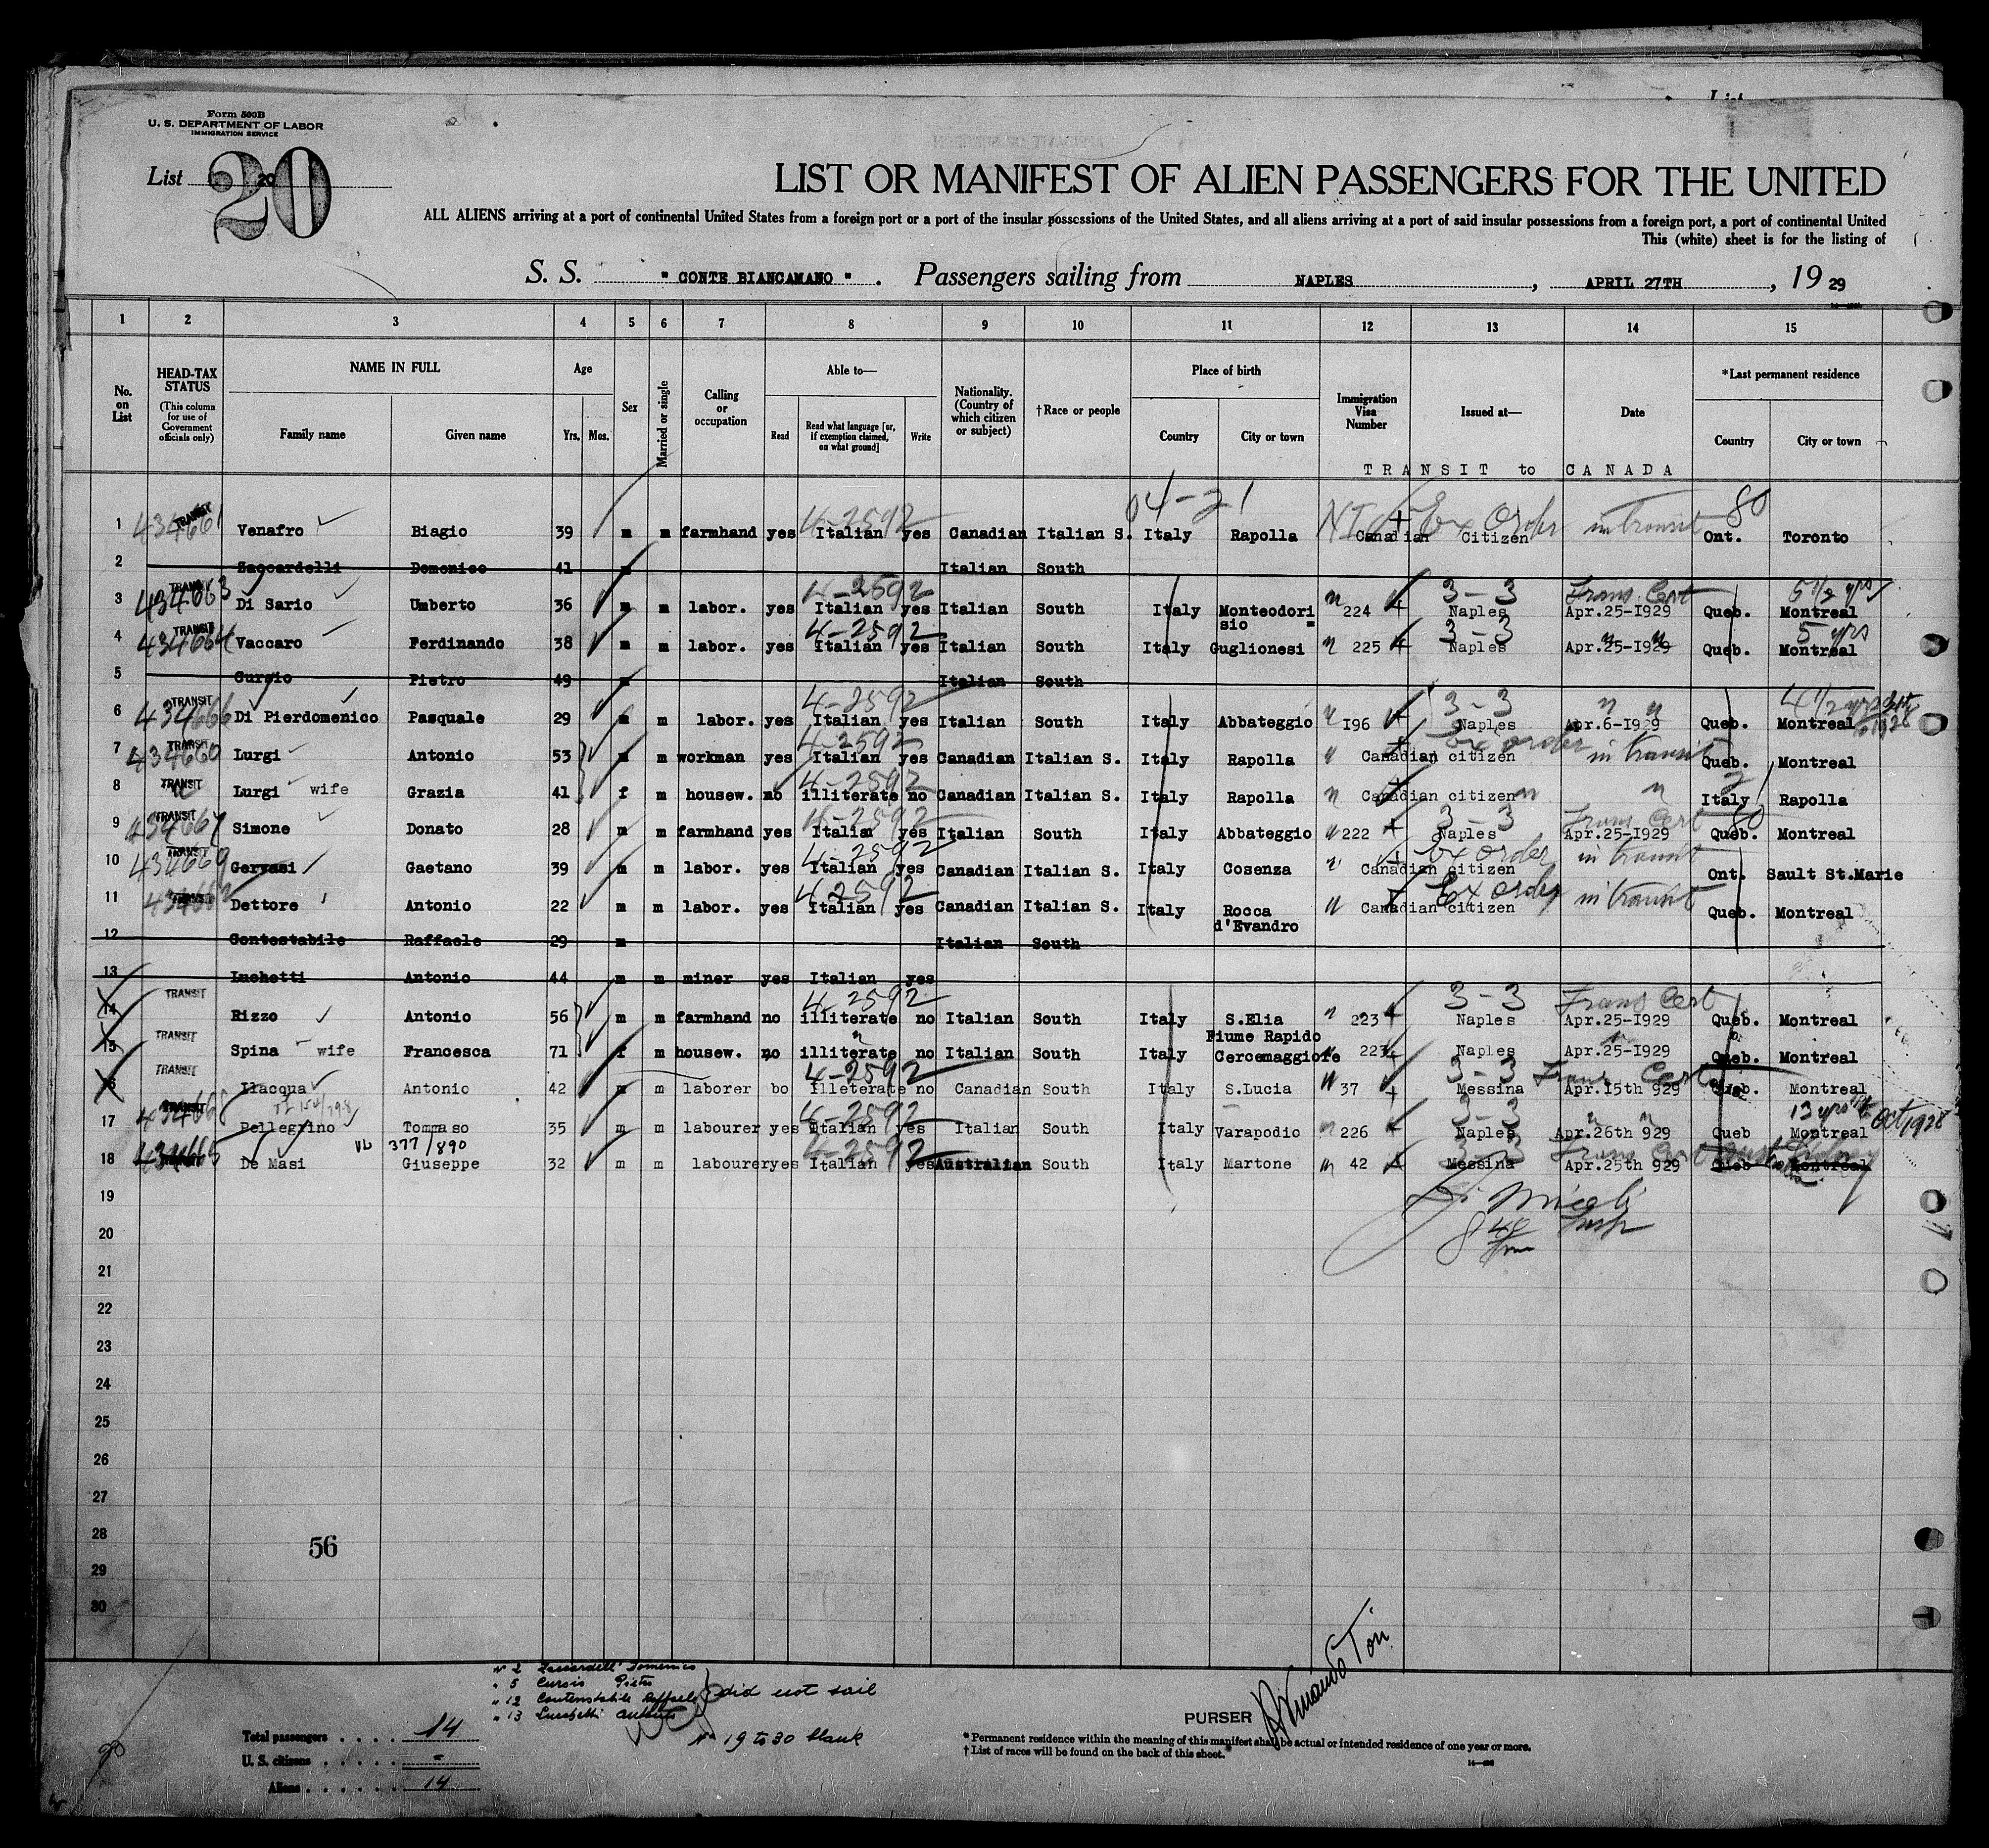 Form 500B
U. S. DEPARTMENT OF LABOR
IMMIGRATION SERVICE
List 20
20
LIST OR MANIFEST OF ALIEN PASSENGERS FOR THE UNITED
ALL ALIENS arriving at a port of continental United States from a foreign port or a port of the insular possessions of the United States, and all aliens arriving at a port of said insular possessions from a foreign port, a port of continental United
This (white) sheet is for the listing of
S. S. " CONTE BIANCAMANO " . Passengers sailing from NAPLES , APRIL 27TH , 19 29
1 2 3 4 5 6 7 8 9 10 11 12 13 14 15
No. on List
HEAD-TAX STATUS
(This column for use of Government officials only)
NAME IN FULL
Family name Given name
Age
Yrs. Mos.
Sex
Married or single
Calling or occupation
Able to—
Read
Read what language [or, if exemption claimed, on what ground]
Write
Nationality. (Country of which citizen or subject)
†Race or people
Place of birth
Country City or town
Immigration Visa Number
Issued at—
Date
*Last permanent residence
Country City or town
TRANSIT to CANADA
04-21
1 434661 TRANSIT Venafro Biagio 39 m m farmhand yes Italian 4-2592 yes Canadian Italian S. Italy Rapolla Canadian Citizen Ex Order in transit 80 Ont. Toronto
2 Zaccardelli Domenico 41 m Italian South
3 434663 TRANSIT Di Sario Umberto 36 m m labor. yes Italian 4-2592 yes Italian South Italy Monteodorisio = 224 3-3 Naples Trans Cert Apr.25-I929 Queb. 5 1/2 yrs Montreal
4 434664 TRANSIT Vaccaro Ferdinando 38 m m labor. yes Italian 4-2592 yes Italian South Italy Guglionesi 225 3-3 Naples Apr.25-I929 Queb. 5 yrs Montreal
5 Cursio Pietro 49 m Italian South
6 434666 TRANSIT Di Pierdomenico Pasquale 29 m m labor. yes Italian 4-2592 yes Italian South Italy Abbateggio I96 3-3 Naples Apr.6-I929 Queb. 4 1/2 yrs Montreal
7 434660 TRANSIT Lurgi Antonio 53 m m workman yes Italian 4-2592 yes Canadian Italian S. Italy Rapolla Canadian citizen Ex order in transit Queb. Montreal
8 TRANSIT Lurgi wife Grazia 41 f m housew. no illiterate 4-2592 no Canadian Italian S. Italy Rapolla Canadian citizen Italy Rapolla
9 434667 TRANSIT Simone Donato 28 m m farmhand yes Italian 4-2592 yes Italian South Italy Abbateggio 222 3-3 Naples Trans Cert Apr.25-I929 80 Queb. Montreal
10 434669 TRANSIT Gervasi Gaetano 39 m m labor. yes Italian 4-2592 yes Canadian Italian S. Italy Cosenza Canadian citizen Ex order in transit Ont. Sault St.Marie
11 434662 TRANSIT Dettore Antonio 22 m m labor. yes Italian 4-2592 yes Canadian Italian S. Italy Rocca d'Evandro Canadian citizen Ex order in transit Queb. Montreal
12 Contestabile Raffaele 29 m Italian South
13 Luchetti Antonio 44 m m miner yes Italian yes
14 TRANSIT Rizzo Antonio 56 m m farmhand no illiterate 4-2592 no Italian South Italy S.Elia Fiume Rapido 223 3-3 Naples Trans Cert Apr.25-I929 Queb. Montreal
15 TRANSIT Spina wife Francesca 71 f m housew. no illiterate no Italian South Italy Cercemaggiore 223 Naples Apr.25-I929 Queb. Montreal
16 TRANSIT Ilacqua Antonio 42 m m laborer bo Illeterate 4-2592 no Canadian South Italy S.Lucia 37 3-3 Messina Trans Cert Apr.15th 929 Queb. Montreal
17 434668 TRANSIT Pellegrino Tommaso 35 m m labourer yes Italian 4-2592 yes Italian South Italy Varapodio 226 3-3 Naples Apr.26th 929 Queb 13 yrs Montreal Oct/1928
377/890
18 434665 De Masi Giuseppe 32 m m labourer yes Italian 4-2592 yes Australian South Italy Martone 42 3-3 Messina Apr.25th 929 Queb Montreal
19
20
21
22
23
24
25
26
27
28
29
30
56
No 2 Zaccardelli Domenico
" 5 Cursio Pietro
" 12 Contestabile Raffaele
" 13 Luchetti Antonio
did not sail
No 19 to 30 blank
Total passengers . . . . 14
U. S. citizens . . . . . -
Aliens . . . . . . 14
PURSER
* Permanent residence within the meaning of this manifest shall be actual or intended residence of one year or more.
† List of races will be found on the back of this sheet.